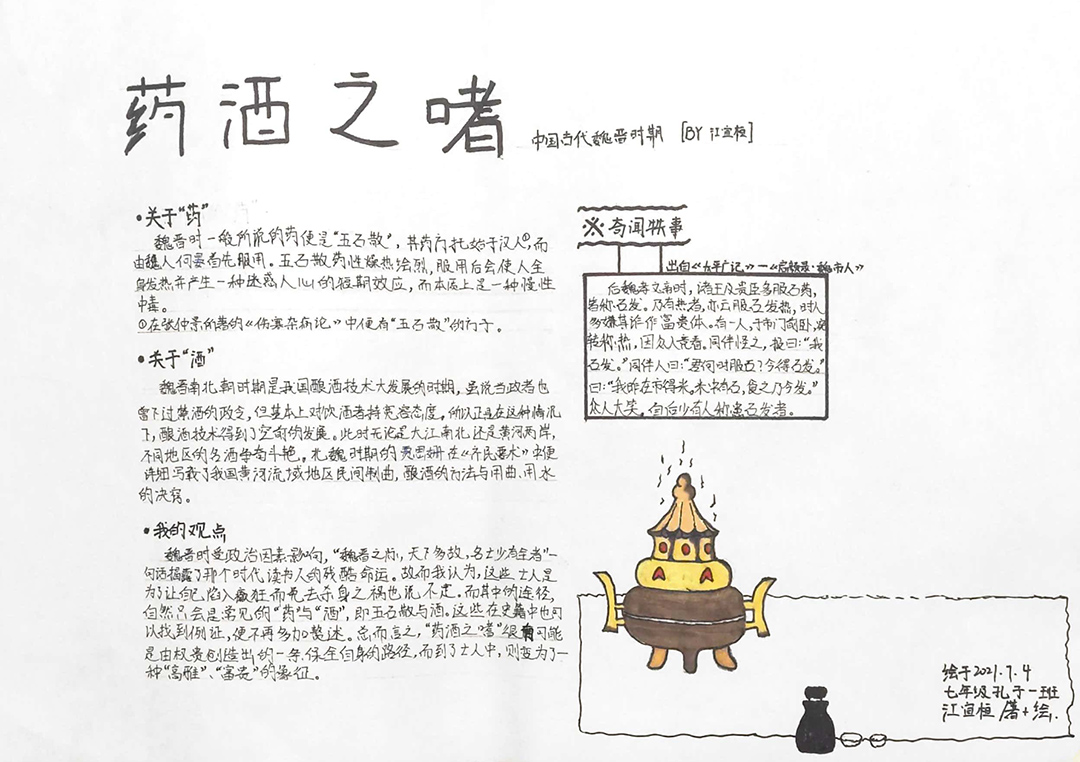 药酒之嗜
中国古代魏晋时期 [BY 江宜桓]
•关于“药”
魏晋时一般所说的药便是“五石散”，其药方托始于汉人①，而
由魏人何晏首先服用。五石散药性燥热绘烈，服用后会使人全
身发热并产生一种迷惑人心的短期效应，而本质上是一种慢性
中毒。
①在张仲景所著的《伤寒杂病论》中便有“五石散”的方子。
•关于“酒”
魏晋南北朝时期是我国酿酒技术大发展的时期，虽说当政者也
曾下过禁酒的政令，但基本上对饮酒者持宽容态度。所以正是在这种情况
下，酿酒技术得到了空前的发展。此时无论是大江南北还是黄河两岸，
不同地区的名酒争奇斗艳。北魏时期的贾思勰在《齐民要术》中便
详细写载了我国黄河流域地区民间制曲，酿酒的方法与用曲、用水
的决窍。
•我的观点
魏晋时受政治因素影响，“魏晋之际，天下多故，名士少有全者”一
句话揭露了那个时代读书人的残酷命运。故而我认为，这些士人是
为了让自己陷入癫狂而免去杀身之祸也说不定。而其中的途径，
自然只会是常见的“药”与“酒”，即五石散与酒。这些在史籍中也可
以找到例证，便不再多加赘述。总而言之，“药酒之嗜”很有可能
是由权贵创造出的一条保全自身的路径，而到了士人中，则变为了一
种“高雅”、“富贵”的象征。
※奇闻轶事
出自《太平广记》—《启颜录·魏市人》
后魏孝文帝时，诸王及贵臣多服石药，
皆称石发。乃有热者，亦云服石发热，时人
多嫌其诈作富贵体。有一人，于市门前卧，宛
转称热，因众人竞看。同伴怪之，报曰：“我
石发。”同伴人曰：“君何时服石？今得石发。”
曰：“我昨在市得米。米中有石，食之乃今发。”
众人大笑。自后少有人称患石发者。
绘于2021.7.4
七年级孔子一班
江宜桓 著+绘.